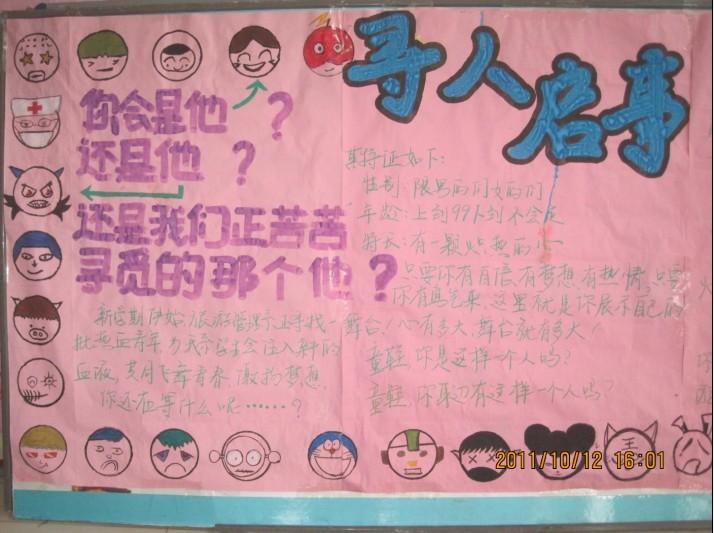 寻人启事
你会是他？
还是他？
还是我们正苦苦
寻觅的那个他？
新学期开始,旅游管理系正寻找一
批热血青年,为我系学生会注入新的
血液,共同飞舞青春,激扬梦想,
你还在等什么呢……？
其特征如下:
性别:限男的们女的们
年龄:上到99下到不会走
特长:有一颗火热的心
只要你有自信,有梦想,有热情,只要
你有真气来,这里就是你展示自己的
舞台!心有多大,舞台就有多大!
童鞋,你是这样一个人吗?
童鞋,你身边有这样一个人吗?
王
2011/10/12 16:01